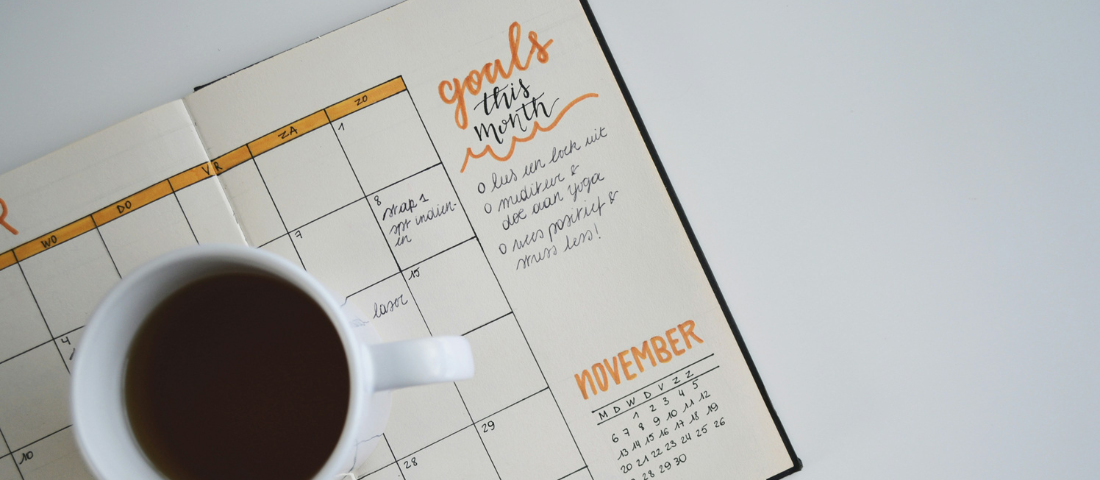 R
WO
DO
VR
ZA
ZO
1
4
7
8
stap 1
spr indien-
en
10
15
laser
28
29
goals
this
month
o lees een boek uit
o mediteer &
doe aan yoga
o wees positief &
stress less!
NOVEMBER
M D W D V Z Z
1 2 3 4 5
6 7 8 9 10 11 12
13 14 15 16 17 18 19
20 21 22 23 24 25 26
28 29 30